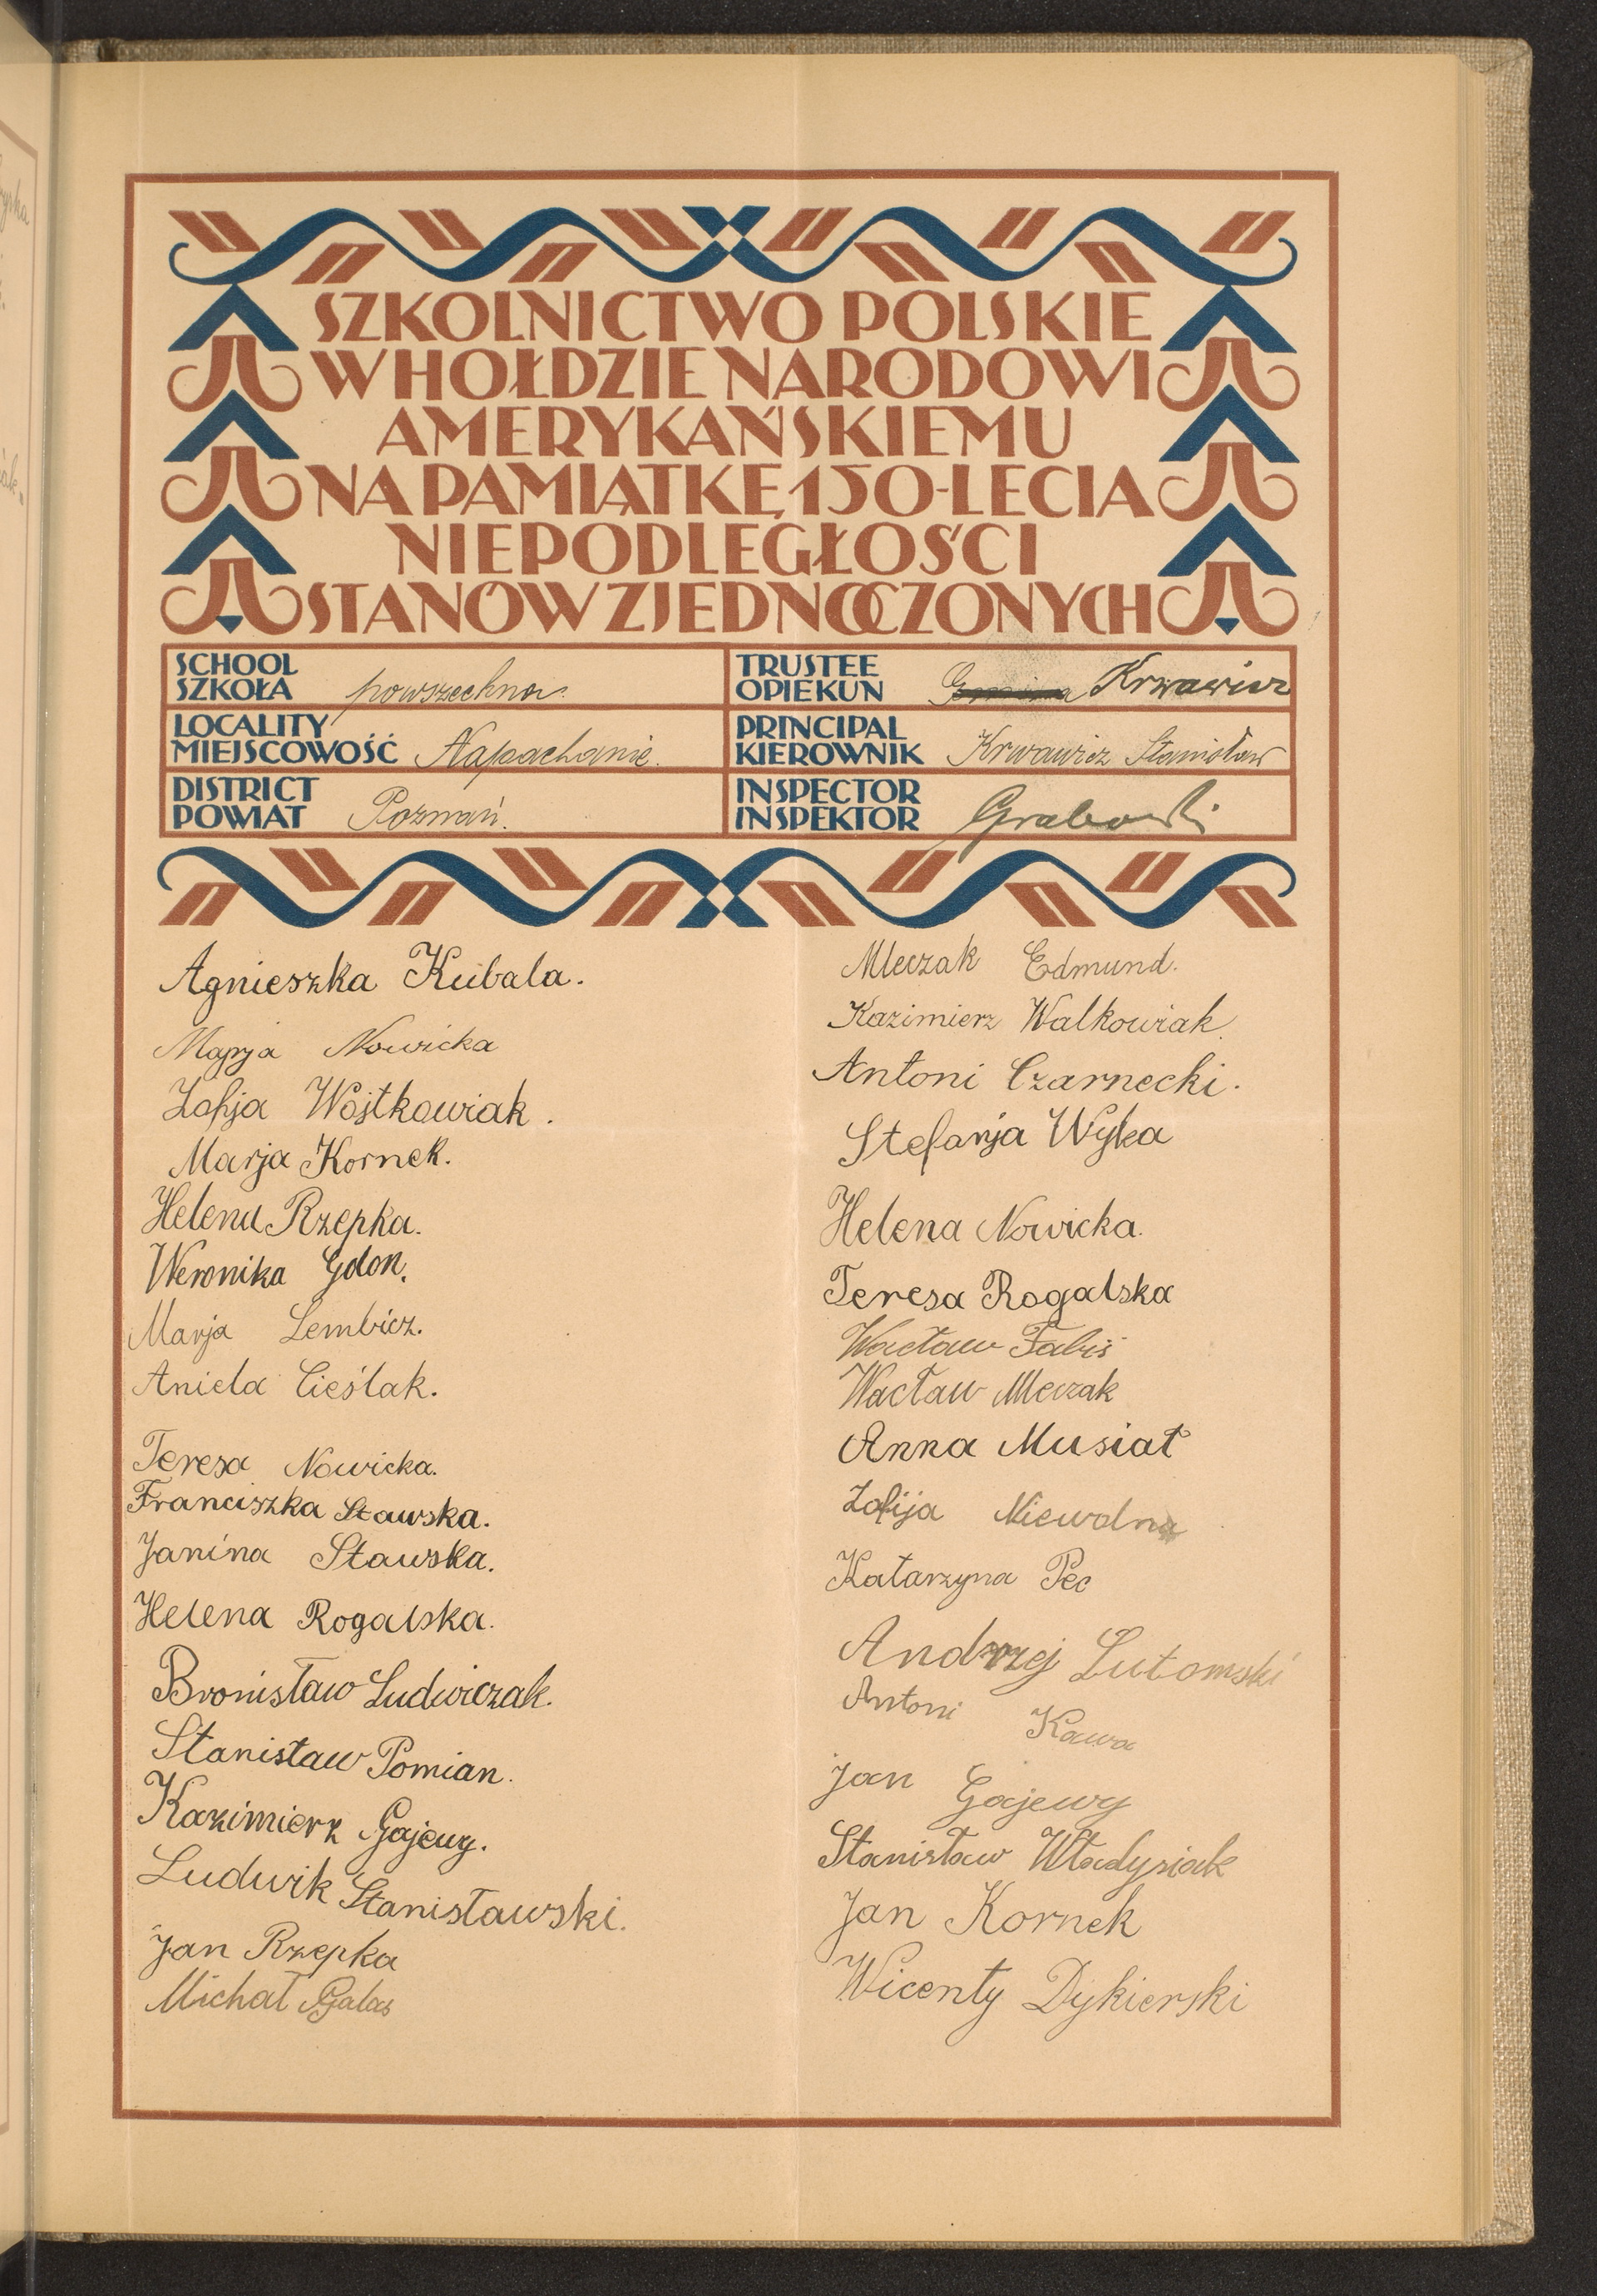 SZKOLNICTWO POLSKIE
W HOŁDZIE NARODOWI
AMERYKAŃSKIEMU
NA PAMIĄTKĘ 150-LECIA
NIEPODLEGŁOŚCI
STANÓW ZJEDNOCZONYCH
SCHOOL
SZKOŁA powszechna.
TRUSTEE
OPIEKUN Krwawicz
LOCALITY
MIEJSCOWOŚĆ Napachanie.
PRINCIPAL
KIEROWNIK Krwawicz Stanisław
DISTRICT
POWIAT Poznań.
INSPECTOR
INSPEKTOR Grabowski
Agnieszka Kubala.
Marja Nowicka
Zofja Wojtkowiak.
Marja Kornek.
Helena Rzepka.
Weronika Gdon.
Marja Lembicz.
Aniela Cieślak.
Teresa Nowicka.
Franciszka Stawska.
Janina Stawska.
Helena Rogalska.
Bronisław Ludwiczak.
Stanisław Pomian.
Kazimierz Gajewy.
Ludwik Stanisławski.
Jan Rzepka
Michał Galas
Mleczak Edmund.
Kazimierz Walkowiak.
Antoni Czarnecki.
Stefanja Wyka
Helena Nowicka.
Teresa Rogalska
Wacław Fabiś
Wacław Mleczak
Anna Musiał
Zofija Niewolna
Katarzyna Pec
Andrzej Lutomski
Antoni Kawa
Jan Gajewy
Stanisław Władysiak
Jan Kornek
Wicenty Dykierski